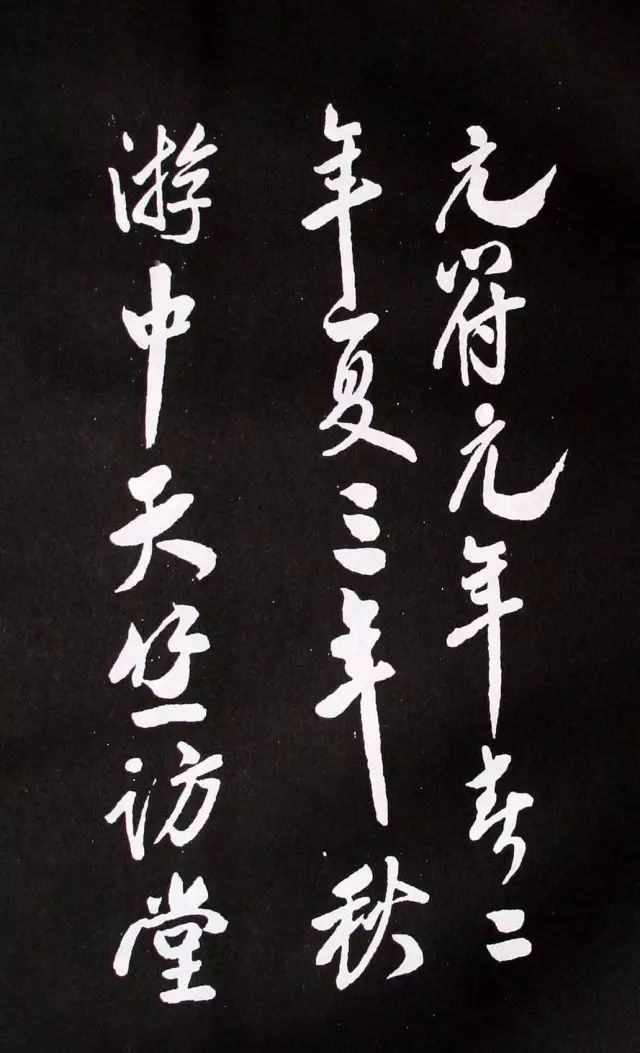 元符元年春二
年夏三年秋
游中天竺訪堂